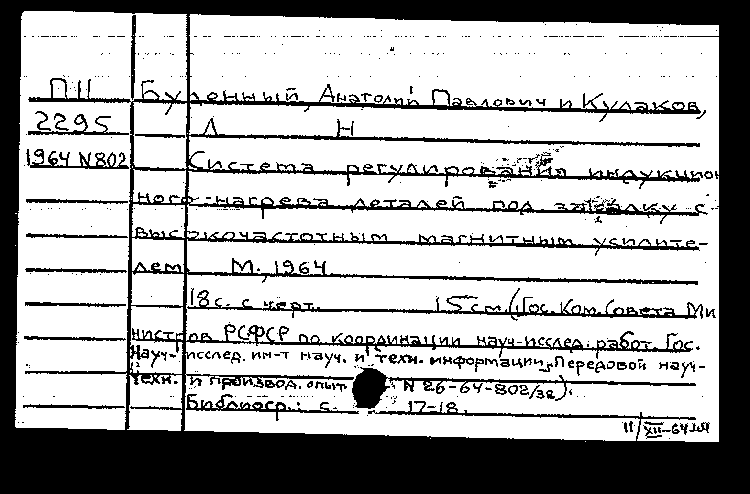 П11 Буденный, Анатолий Павлович и Кулаков,
2295 Л Н
1964 N802 Система регулирования индукцион
ного нагрева деталей под закалку с
высокочастотным магнитным усилите-
лем М., 1964
18с. с черт. 15см. (Гос. Ком. Совета Ми
нистров РСФСР по координации науч-исслед. работ. Гос.
Науч-исслед. ин-т науч. и техн. информации. Передовой науч-
техн. и производ. опыт N 26-64-802/38).
Библиогр.: с. 17-18.
11/XII-64